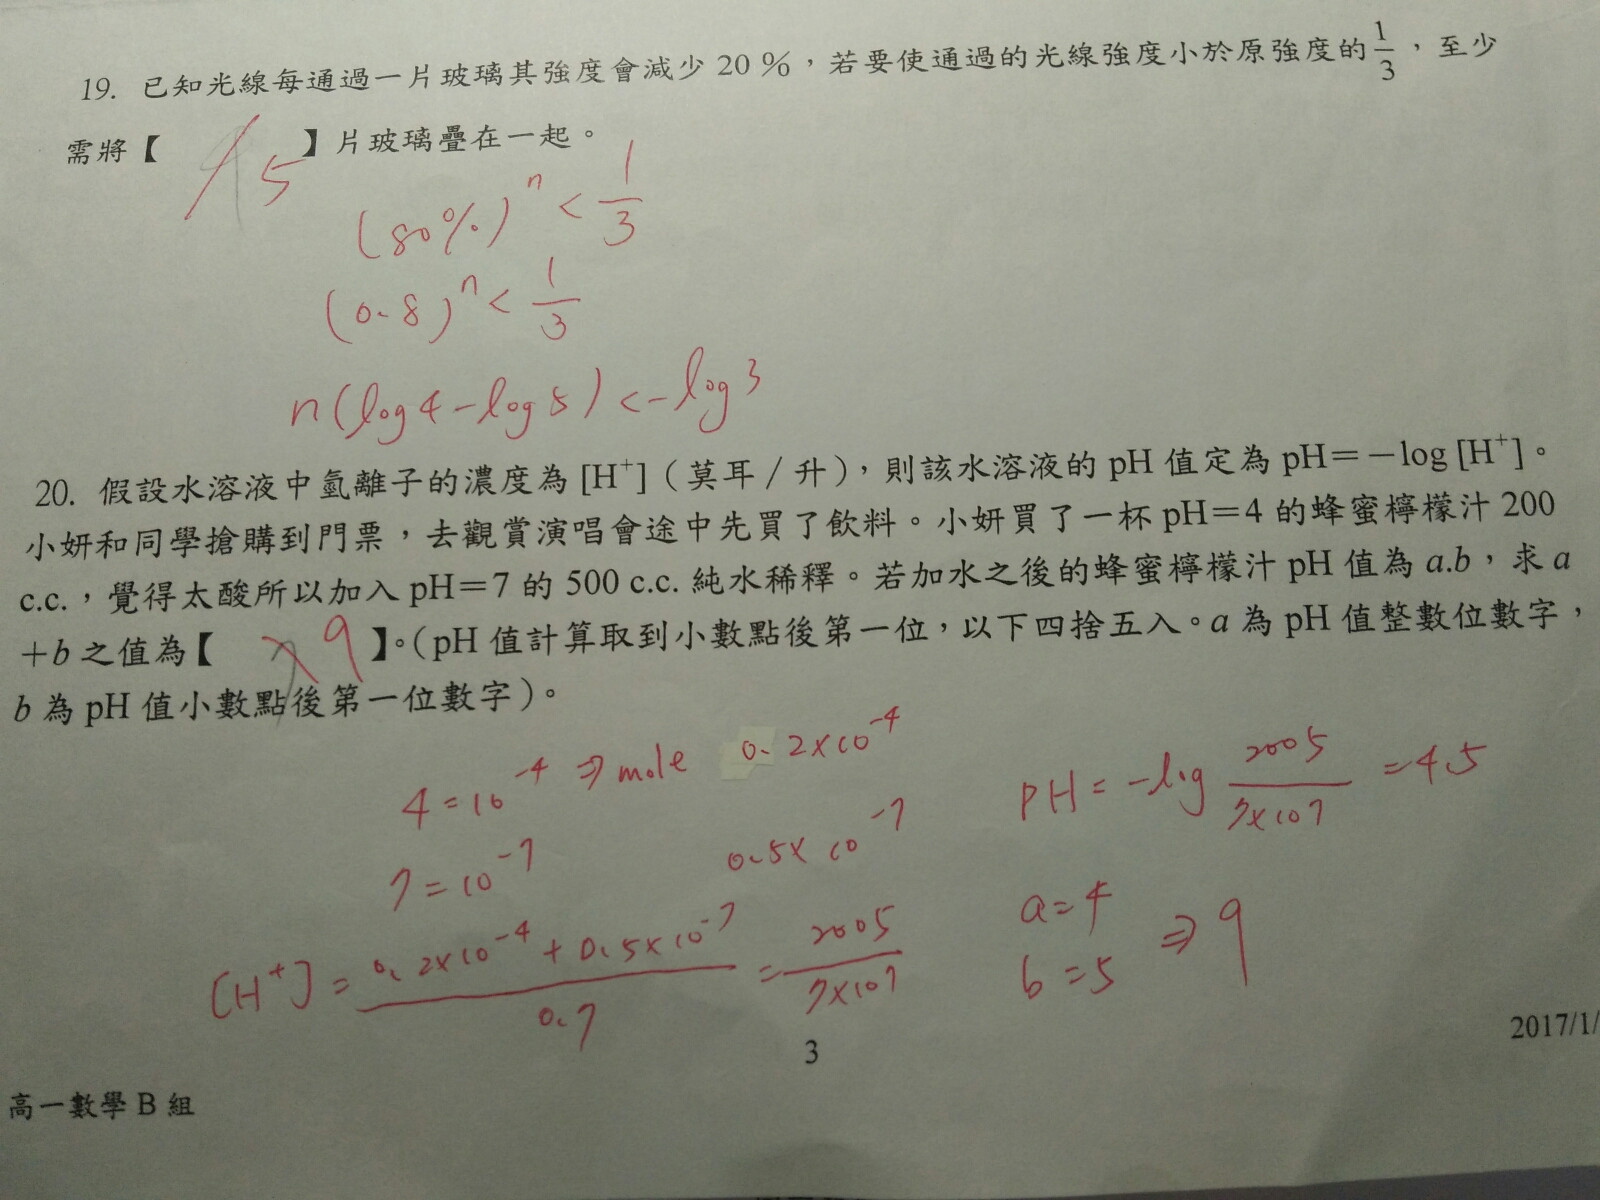 19. 已知光線每通過一片玻璃其強度會減少 20 %，若要使通過的光線強度小於原強度的 1/3，至少
需將【 5 】片玻璃疊在一起。
(80%)^n < 1/3
(0.8)^n < 1/3
n(log4-log5) < -log3
20. 假設水溶液中氫離子的濃度為 [H⁺]（莫耳/升），則該水溶液的 pH 值定為 pH＝－log [H⁺]。
小妍和同學搶購到門票，去觀賞演唱會途中先買了飲料。小妍買了一杯 pH＝4 的蜂蜜檸檬汁 200
c.c.，覺得太酸所以加入 pH＝7 的 500 c.c. 純水稀釋。若加水之後的蜂蜜檸檬汁 pH 值為 a.b，求 a
＋b 之值為【 9 】。（pH 值計算取到小數點後第一位，以下四捨五入。a 為 pH 值整數位數字，
b 為 pH 值小數點後第一位數字）。
4=10^-4 ⇒ mole 0.2×10^-4
7=10^-7 0.5×10^-7
[H⁺] = (0.2×10^-4 + 0.5×10^-7)/0.7 = 2005/7×10^7
PH = -log 2005/7×10^7 = 4.5
a=4
b=5 ⇒ 9
3
2017/1/
高一數學 B 組